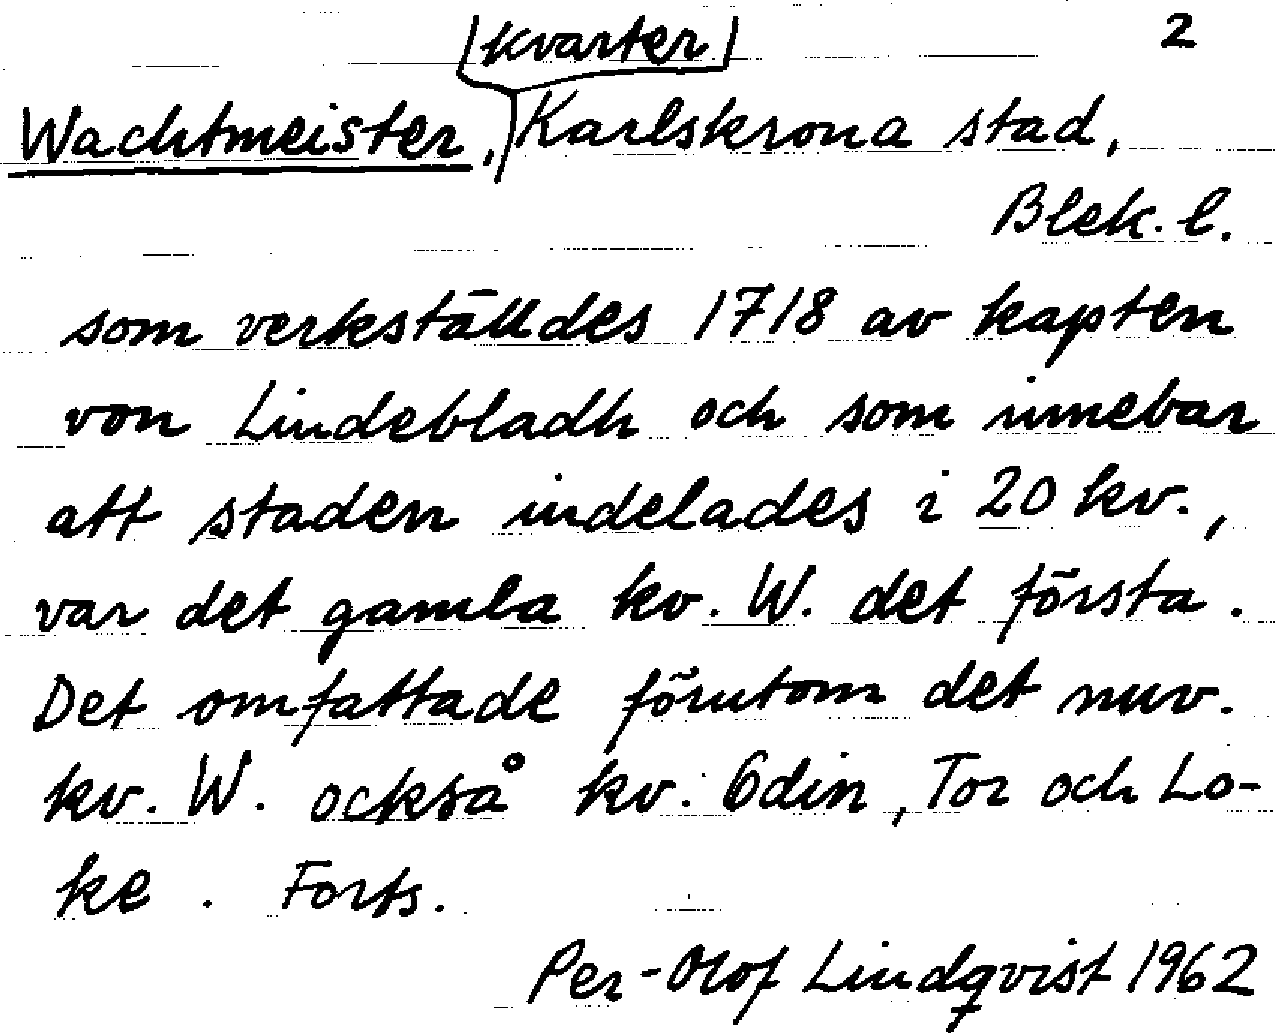 kvarter 2
Wachtmeister, Karlskrona stad,
Blek. l.
som verkställdes 1718 av kapten
von Lindebladh och som innebar
att staden indelades i 20 kv.,
var det gamla kv. W. det första.
Det omfattade förutom det nuv.
kv. W. också kv. Odin, Tor och Lo-
ke. Forts.
Per-Olof Lindqvist 1962